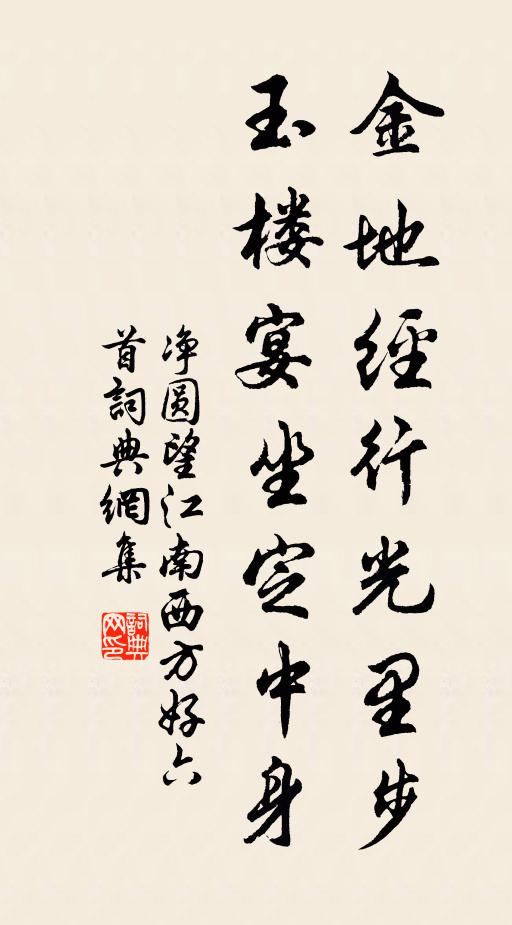 金地經行光里步
玉楼宴坐定中身
净圆望江南西方好六
首詞典網集
詞典
网印